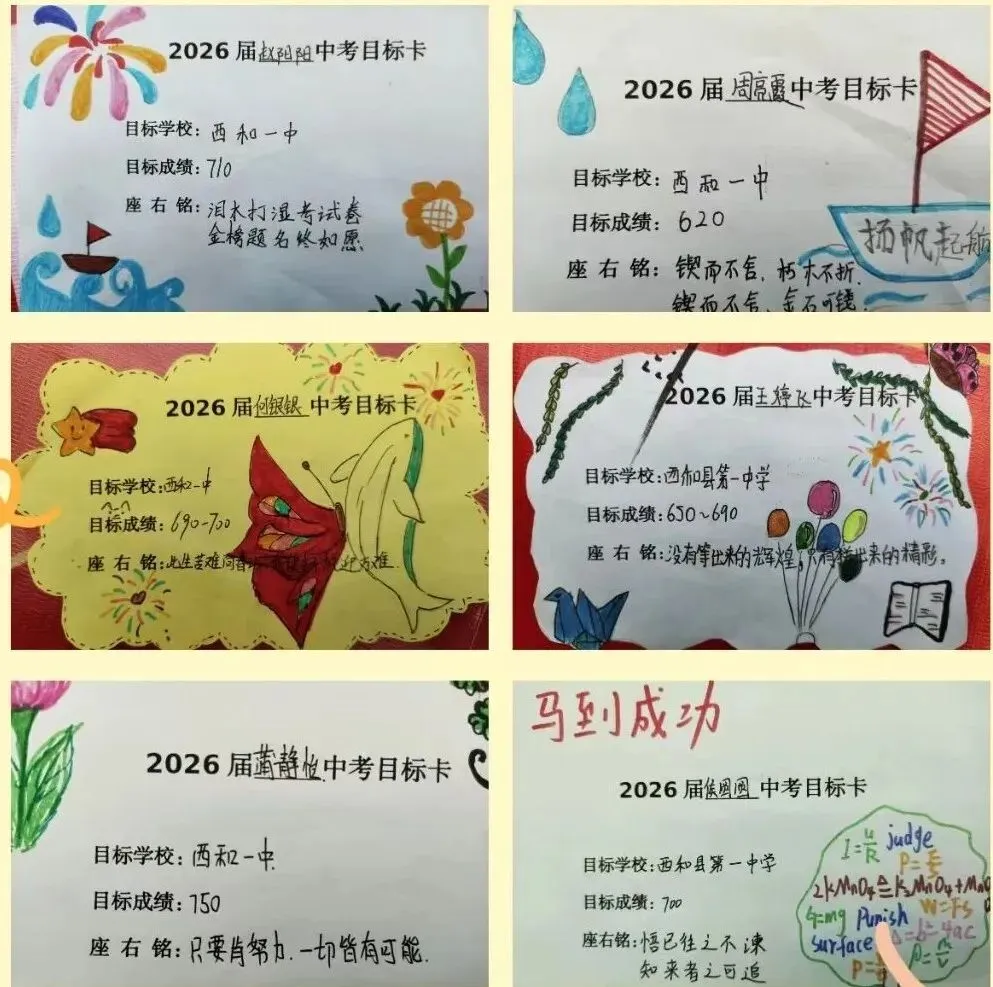 2026届赵阳阳中考目标卡
目标学校：西和一中
目标成绩：710
座右铭：泪水打湿考试卷
金榜题名终如愿
2026届周京霞中考目标卡
目标学校：西和一中
目标成绩：620
座右铭：锲而不舍，朽木不折，
锲而不舍，金石可镂
扬帆起航
2026届何银银中考目标卡
目标学校：西和一中
目标成绩：690-700
座右铭：此生苦难何
万难
2026届王婷飞中考目标卡
目标学校：西和县第一中学
目标成绩：650~690
座右铭：没有等出来的辉煌，只有拼出来的精彩。
2026届蒲静怡中考目标卡
目标学校：西和一中
目标成绩：750
座右铭：只要肯努力，一切皆有可能.
马到成功
2026届侯圆圆中考目标卡
目标学校：西和县第一中学
目标成绩：700
座右铭：悟已往之不谏
知来者之可追
I=U/R judge
2KMnO4 K2MnO4+MnO
G=mg Punish W=Fs
surface Δ=b²-4ac